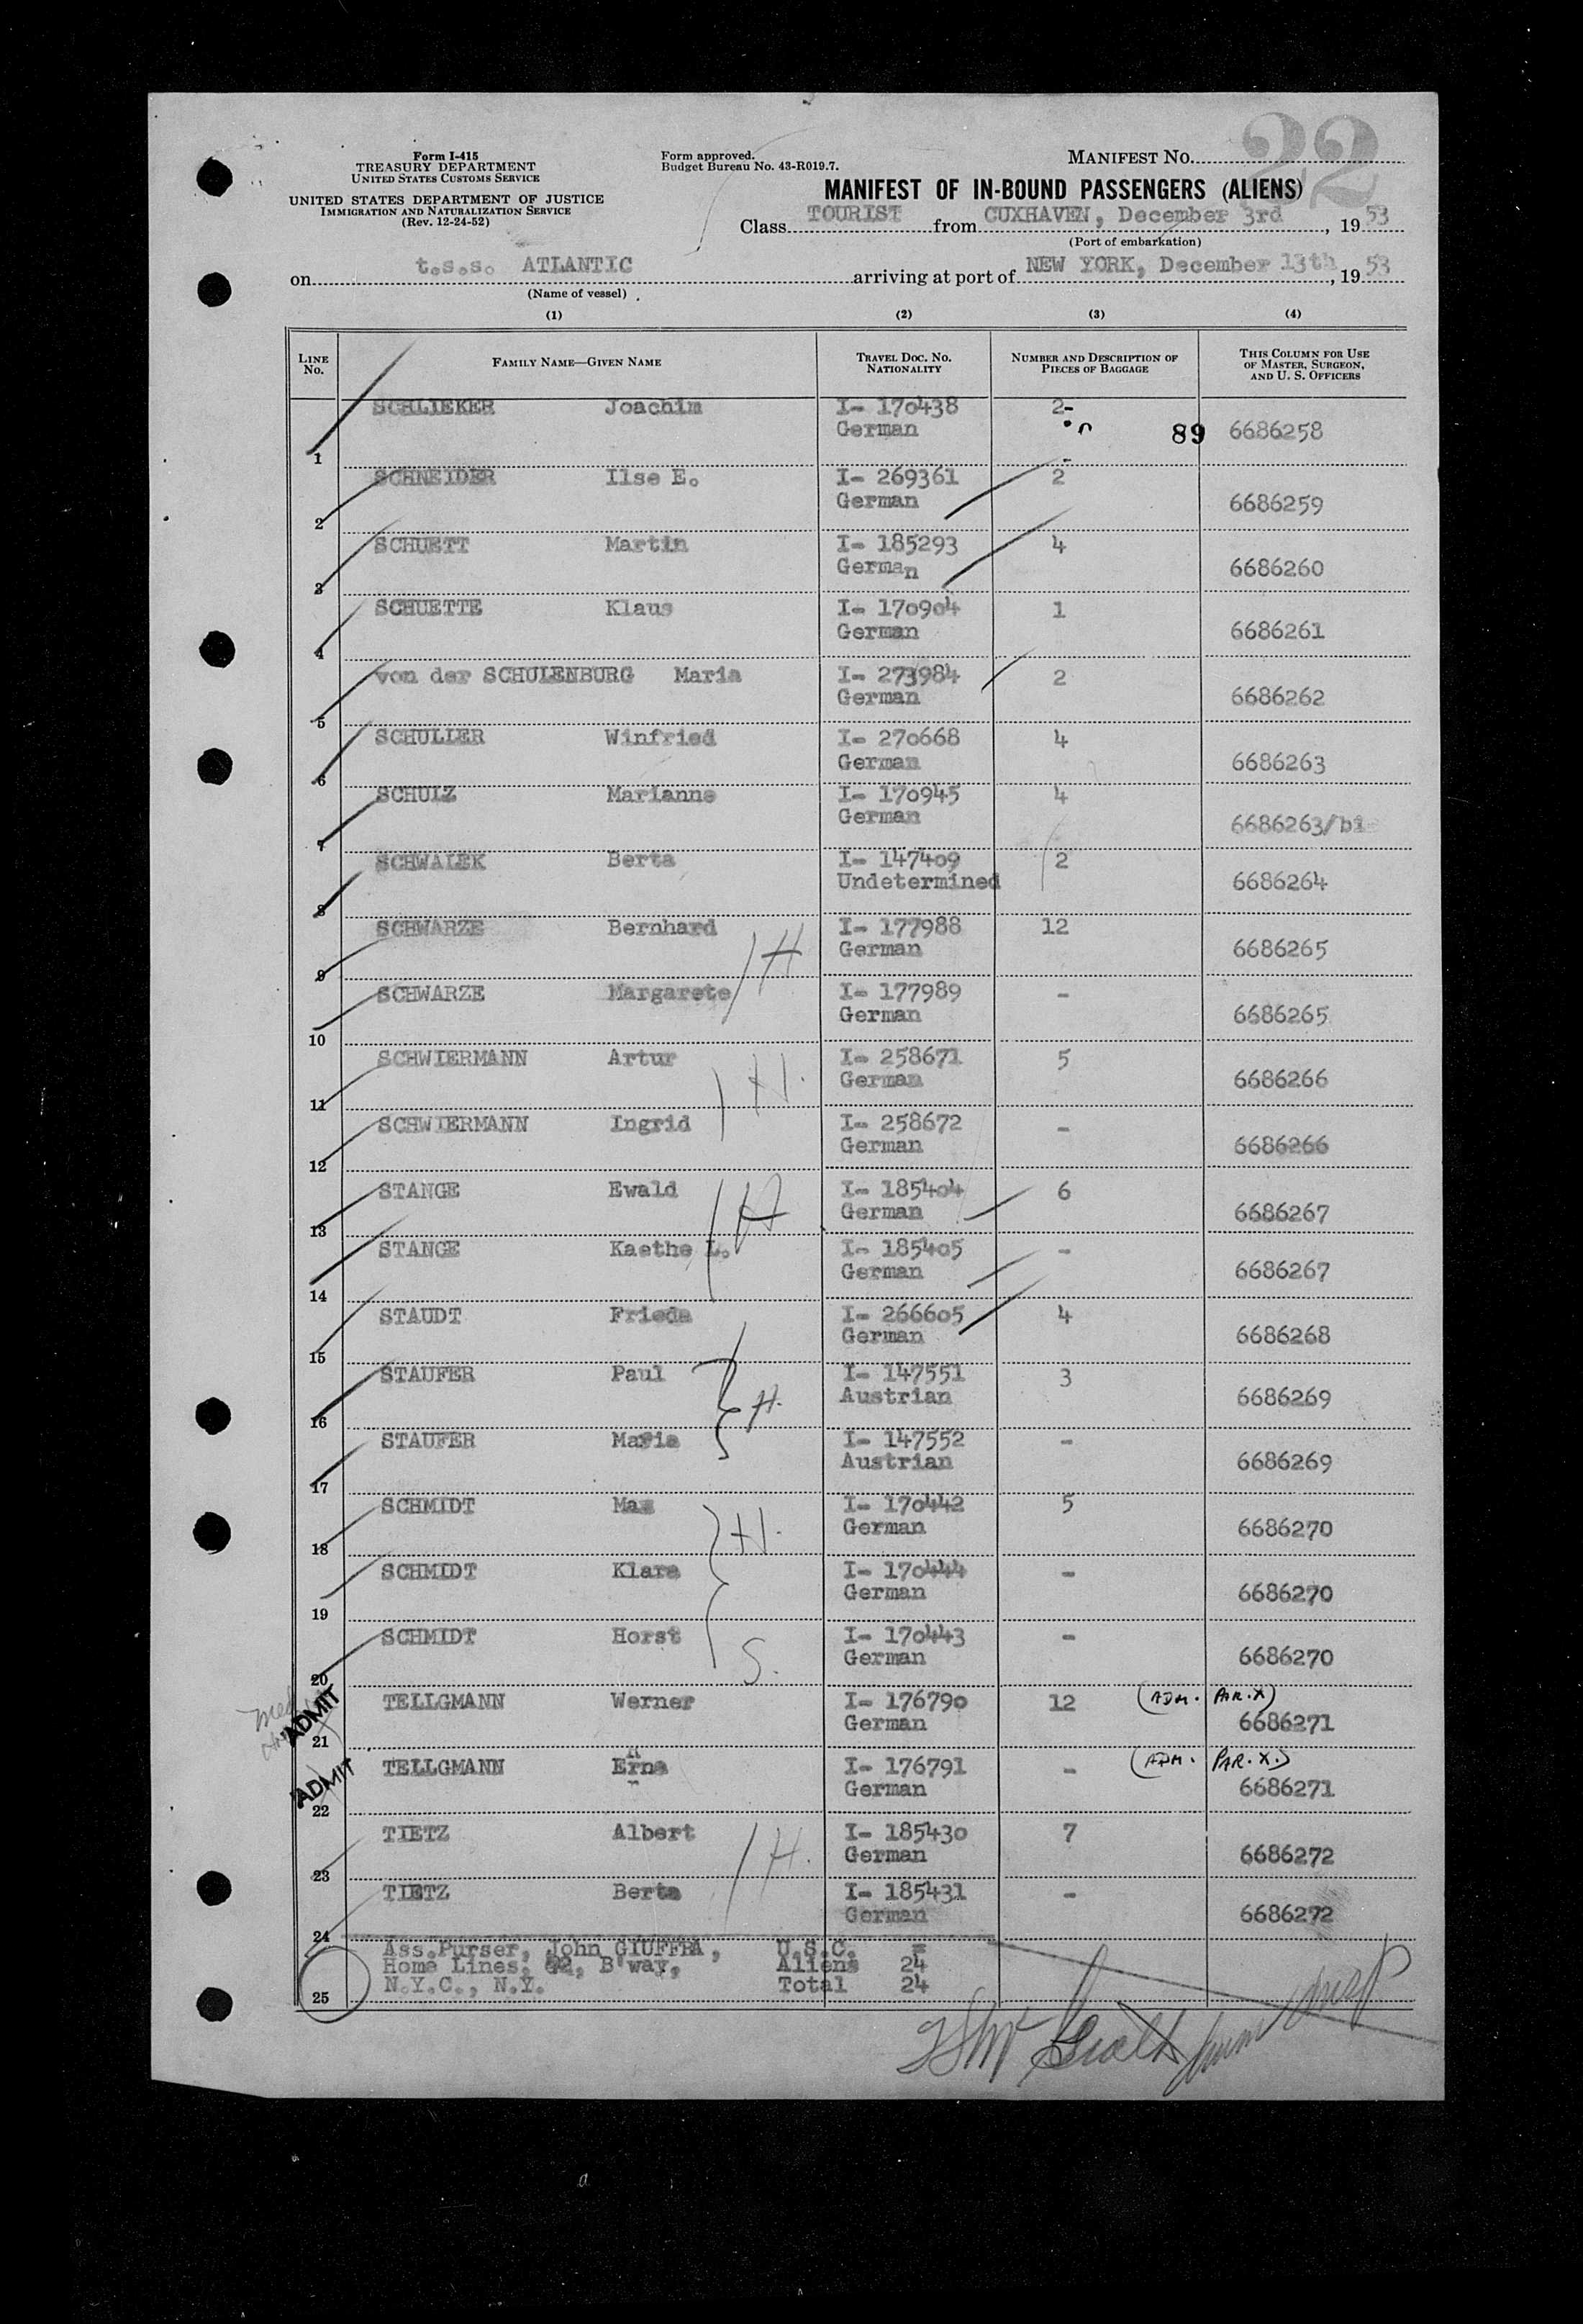 22
Form I-415
TREASURY DEPARTMENT
UNITED STATES CUSTOMS SERVICE
UNITED STATES DEPARTMENT OF JUSTICE
IMMIGRATION AND NATURALIZATION SERVICE
(Rev. 12-24-52)
Form approved.
Budget Bureau No. 43-R019.7.
MANIFEST NO.
MANIFEST OF IN-BOUND PASSENGERS (ALIENS)
Class TOURIST from CUXHAVEN, December 3rd, 1953
(Port of embarkation)
on t.s.s. ATLANTIC arriving at port of NEW YORK, December 13th, 1953
(Name of vessel)
(1) (2) (3) (4)
LINE NO. FAMILY NAME—GIVEN NAME TRAVEL DOC. NO. NATIONALITY NUMBER AND DESCRIPTION OF PIECES OF BAGGAGE THIS COLUMN FOR USE OF MASTER, SURGEON, AND U. S. OFFICERS
SCHLIEKER Joachim I- 170438 2-
1 German 89 6686258
SCHNEIDER Ilse E. I- 269361 2
2 German 6686259
SCHUETT Martin I- 185293 4
3 German 6686260
SCHUETTE Klaus I- 170904 1
4 German 6686261
von der SCHULENBURG Maria I- 273984 2
5 German 6686262
SCHULLER Winfried I- 270668 4
6 German 6686263
SCHULZ Marianne I- 170945 4
7 German 6686263/bi
SCHWALEK Berta I- 147409 2
8 Undetermined 6686264
SCHWARZE Bernhard I- 177988 12
9 German 6686265
H
SCHWARZE Margarete I- 177989 -
10 German 6686265
SCHWIERMANN Artur I- 258671 5
11 German 6686266
H.
SCHWIERMANN Ingrid I- 258672 -
12 German 6686266
STANGE Ewald I- 185404 6
13 German 6686267
H
STANGE Kaethe L. I- 185405 -
14 German 6686267
STAUDT Frieda I- 266605 4
15 German 6686268
STAUFER Paul I- 147551 3
16 Austrian 6686269
H.
STAUFER Maria I- 147552 -
17 Austrian 6686269
SCHMIDT Max I- 170442 5
18 German 6686270
H.
SCHMIDT Klara I- 170444 -
19 German 6686270
SCHMIDT Horst I- 170443 -
20 German 6686270
S.
TELLGMANN Werner I- 176790 12 (ADM. PAR. X)
ADMIT
21 German 6686271
TELLGMANN Erna I- 176791 - (ADM. PAR. X.)
ADMIT
22 German 6686271
TIETZ Albert I- 185430 7
23 German 6686272
H.
TIETZ Berta I- 185431 -
24 German 6686272
Ass.Purser, John GIUFFRA, U.S.C. =
Home Lines, 42, B'way, Aliens 24
25 N.Y.C., N.Y. Total 24